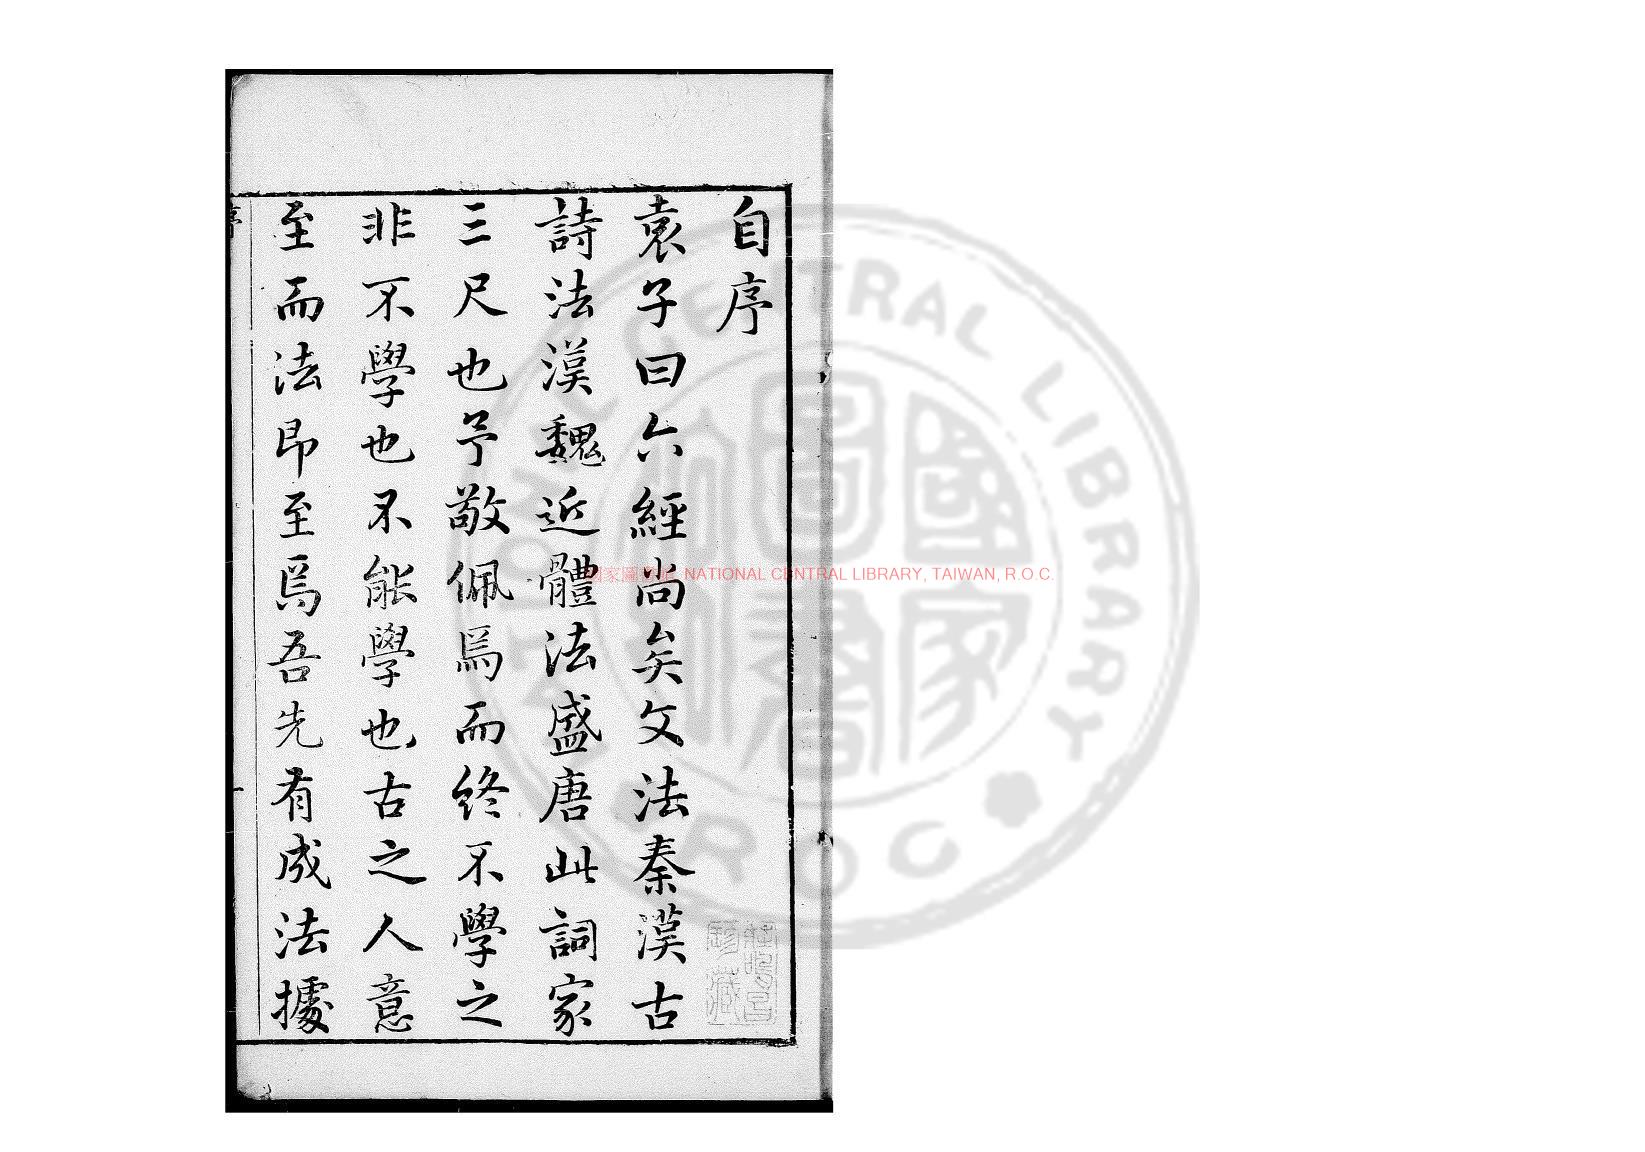 自序
袁子曰六經尚矣文法秦漢古
詩法漢魏近體法盛唐此詞家
三尺也予敬佩焉而終不學之
非不學也不能學也古之人意
至而法即至焉吾先有成法據
序
一
國家圖書館 NATIONAL CENTRAL LIBRARY, TAIWAN, R.O.C.
NATIONAL CENTRAL LIBRARY R.O.C.
國家圖書館